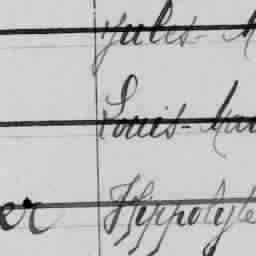 Jules - M
Louis - Mar
er Hippolyte